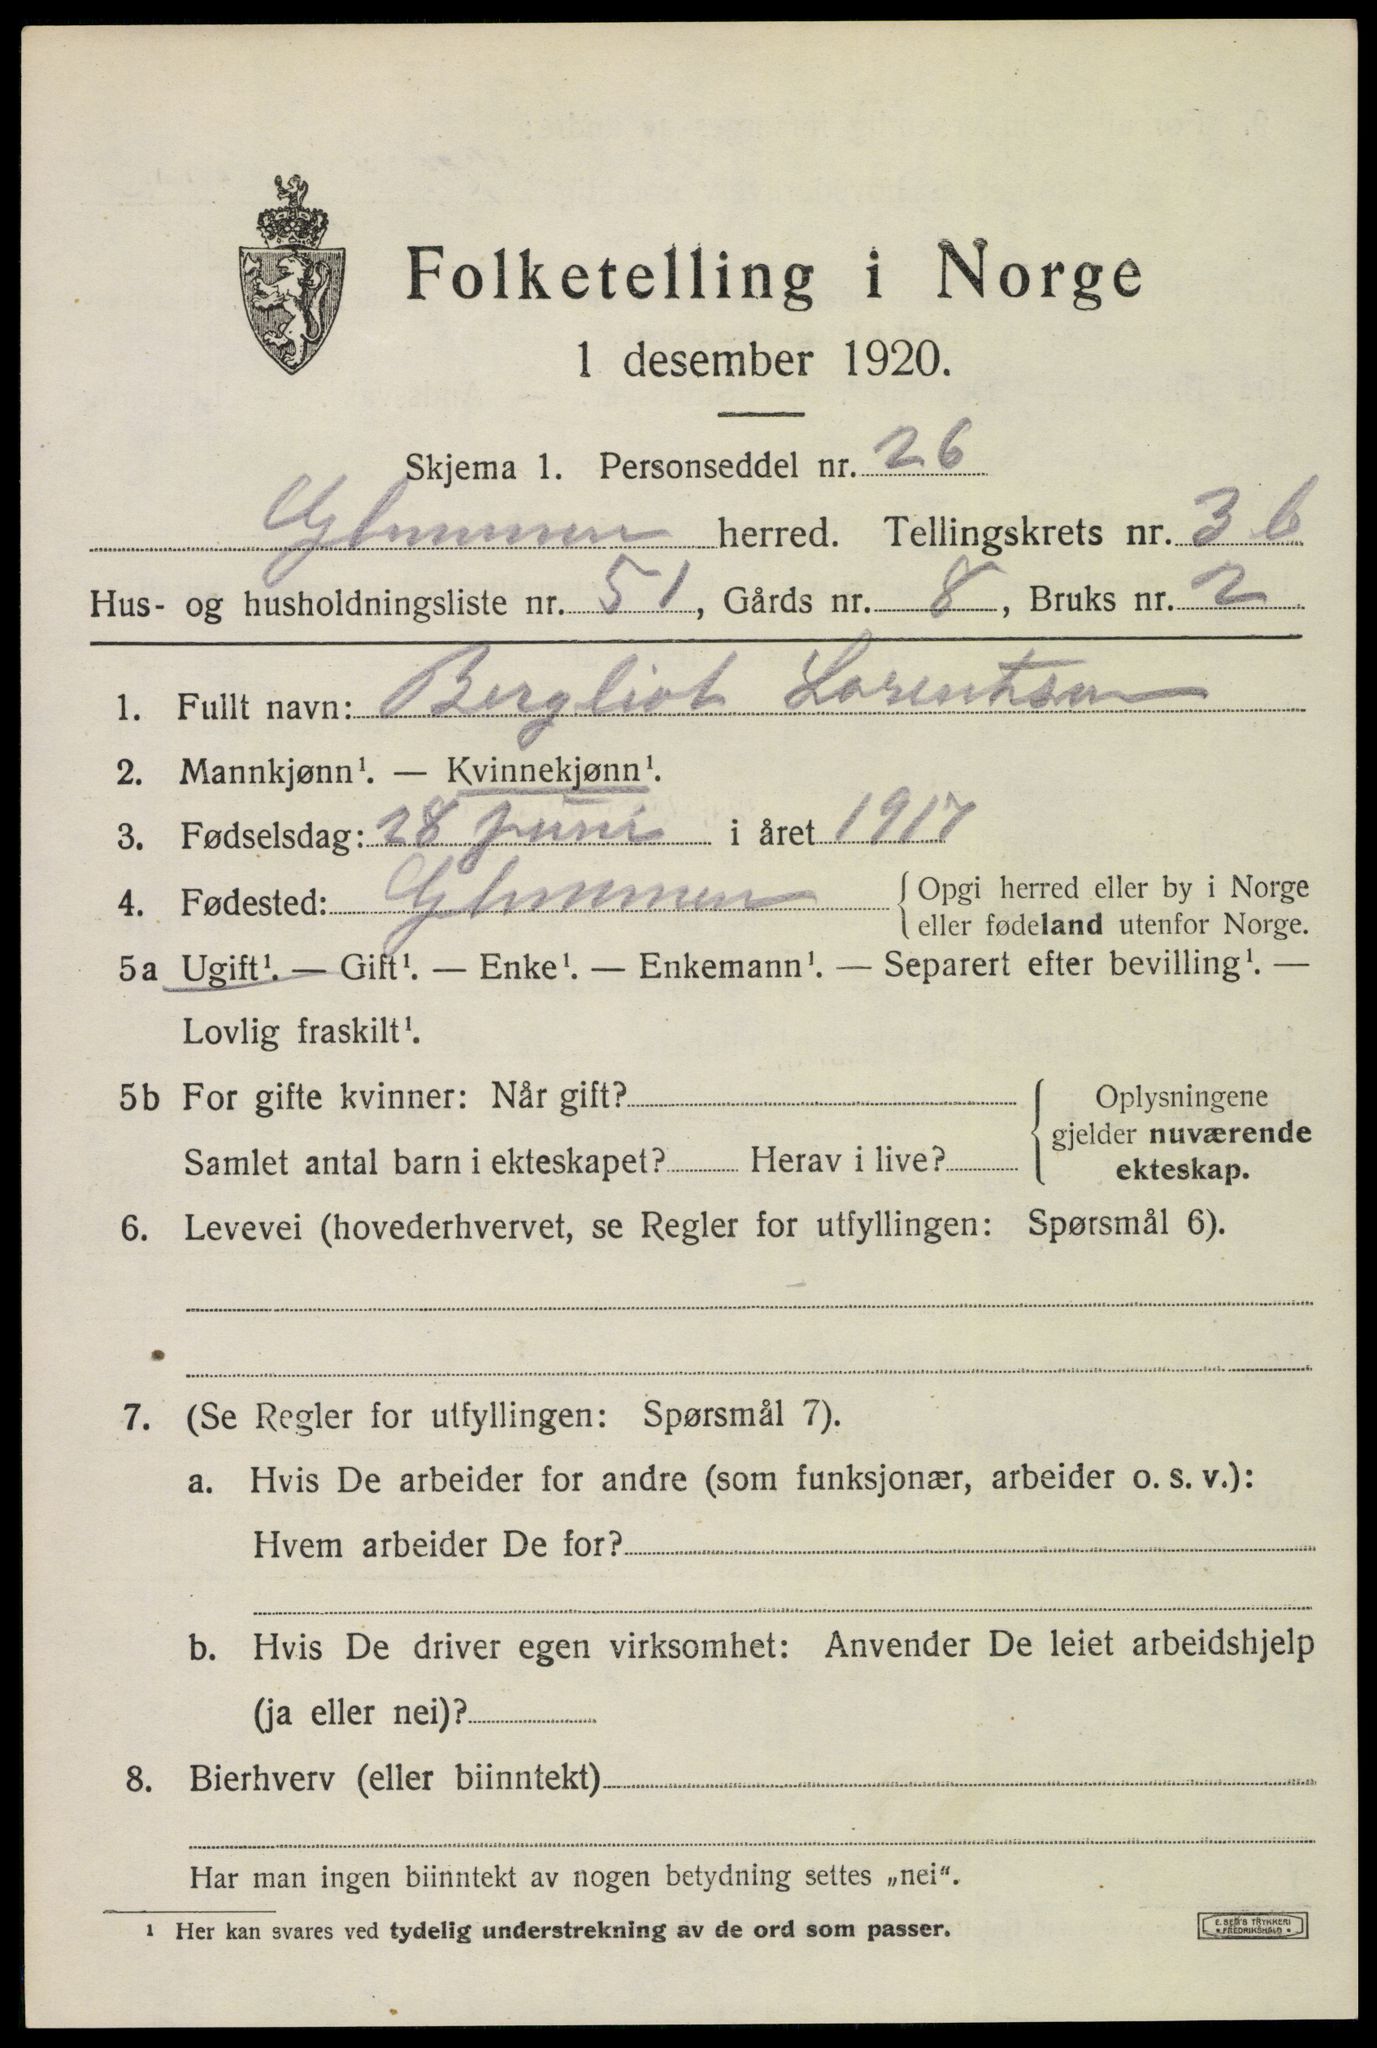 Folketelling i Norge
1 desember 1920.
Skjema 1. Personseddel nr. 26
Glemmen herred. Tellingskrets nr. 3 b
Hus- og husholdningsliste nr. 51, Gårds nr. 8, Bruks nr. 2
1. Fullt navn: Bergliot Lorentsen
2. Mannkjønn¹. — Kvinnekjønn¹.
3. Fødselsdag: 28 juni i året 1917
4. Fødested: Glemmen { Opgi herred eller by i Norge
eller fødeland utenfor Norge.
5a Ugift¹. — Gift¹. — Enke¹. — Enkemann¹. — Separert efter bevilling¹. —
Lovlig fraskilt¹.
5b For gifte kvinner: Når gift? { Oplysningene
gjelder nuværende
Samlet antal barn i ekteskapet? Herav i live? ekteskap.
6. Levevei (hovederhvervet, se Regler for utfyllingen: Spørsmål 6).
7. (Se Regler for utfyllingen: Spørsmål 7).
a. Hvis De arbeider for andre (som funksjonær, arbeider o. s. v.):
Hvem arbeider De for?
b. Hvis De driver egen virksomhet: Anvender De leiet arbeidshjelp
(ja eller nei)?
8. Bierhverv (eller biinntekt)
Har man ingen biinntekt av nogen betydning settes „nei“.
¹ Her kan svares ved tydelig understrekning av de ord som passer.
E. SEM'S TRYKKERI
FREDRIKSHALD